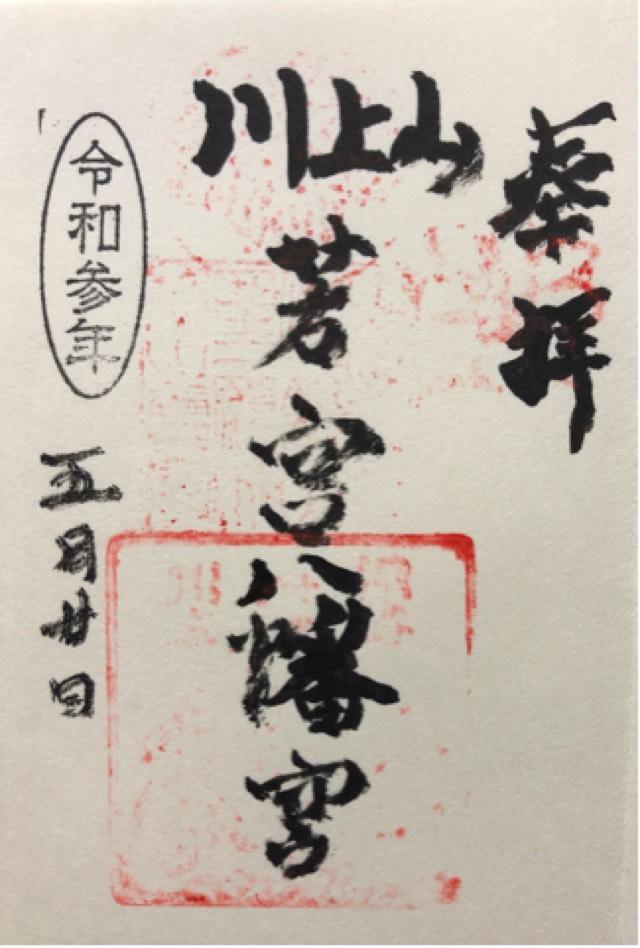 奉拝
川上山
若宮八幡宮
令和参年
五月廿日